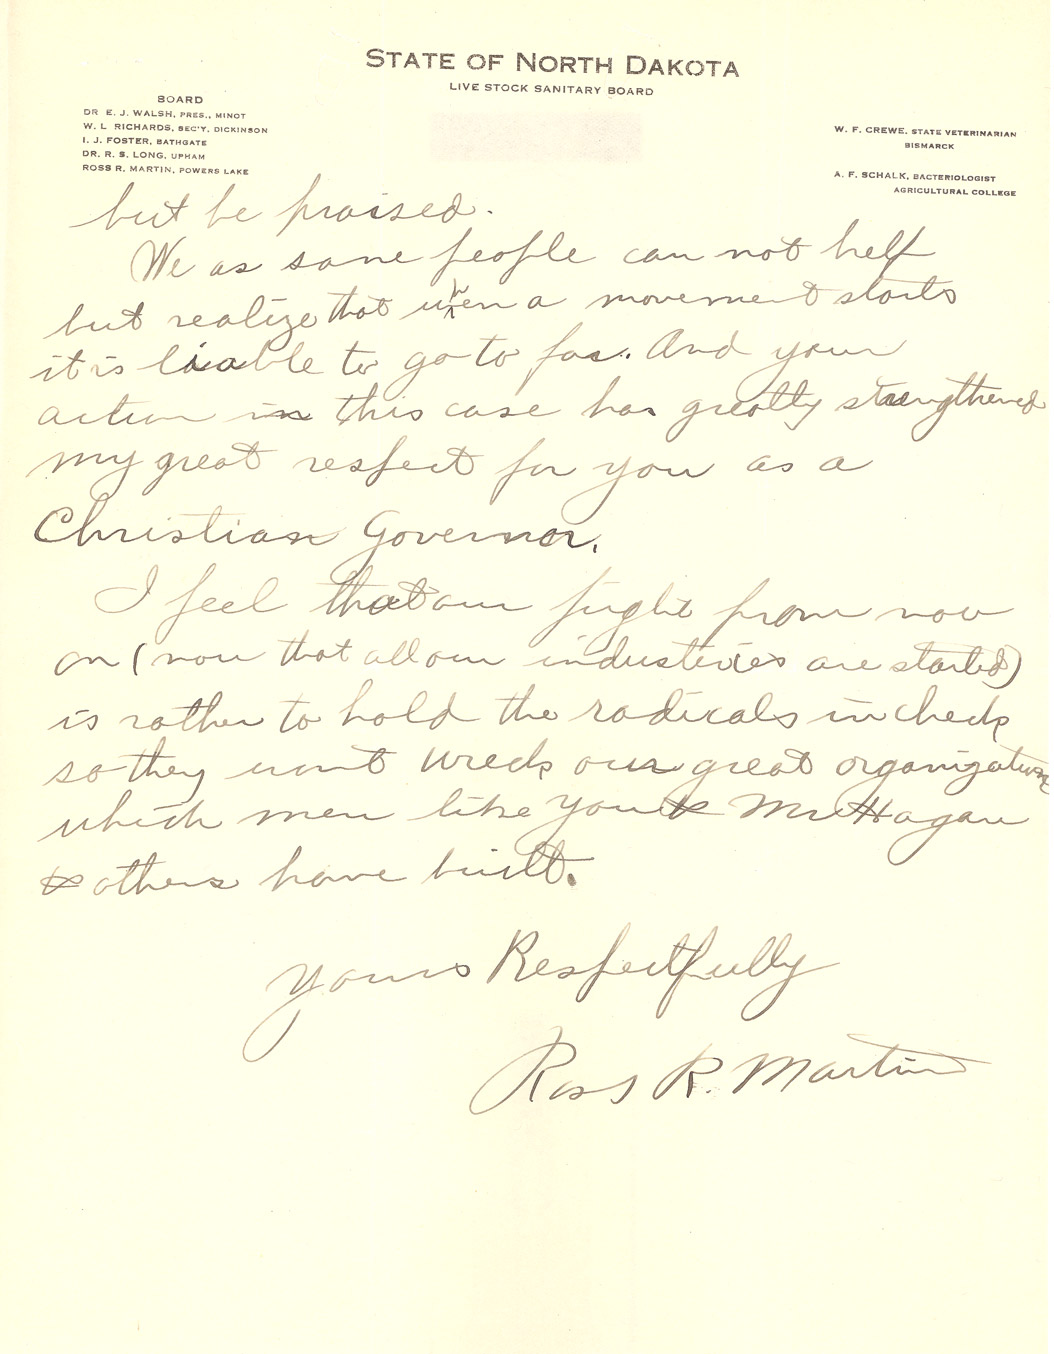 STATE OF NORTH DAKOTA
LIVE STOCK SANITARY BOARD
BOARD
DR E. J. WALSH, PRES., MINOT
W. L RICHARDS, SEC'Y, DICKINSON
I. J. FOSTER, BATHGATE
DR. R. S. LONG, UPHAM
ROSS R. MARTIN, POWERS LAKE
W. F. CREWE, STATE VETERINARIAN
BISMARCK
A. F. SCHALK, BACTERIOLOGIST
AGRICULTURAL COLLEGE
but be praised.
We as sane people can not help
but realize that when a movement starts
it is liable to go to far. And your
action in this case has greatly strengthened
my great respect for you as a
Christian Governor.
I feel that our fight from now
on (now that all our industeries are started)
is rather to hold the radicals in check
so they wont wreck our great organization
which men like you & Mr Hagan
& others have built.
Yours Respectfully
Ross R. Martin